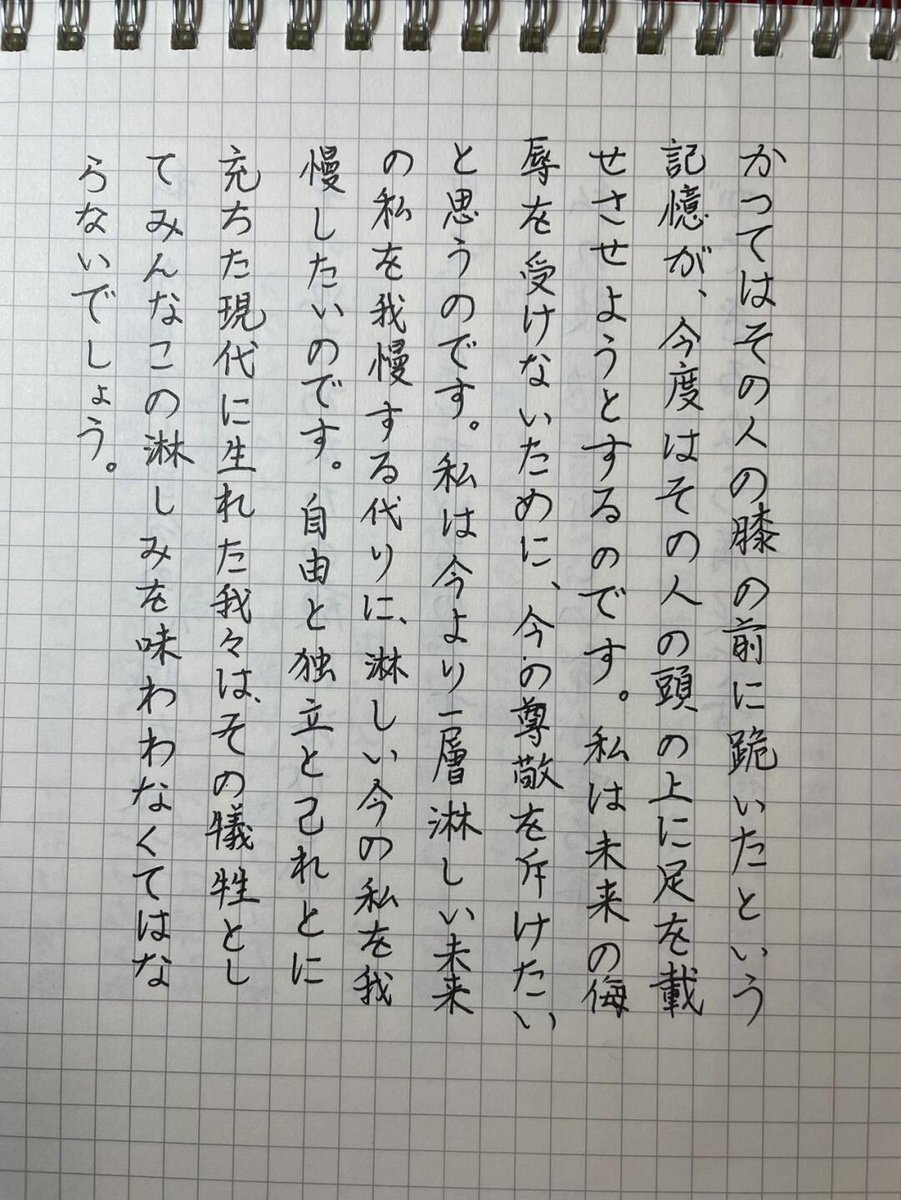 かつてはその人の膝の前に跪いたという
記憶が、今度はその人の頭の上に足を載
せさせようとするのです。私は未来の侮
辱を受けないために、今の尊敬を斥けたい
と思うのです。私は今より一層淋しい未来
の私を我慢する代りに、淋しい今の私を我
慢したいのです。自由と独立と己れとに
充ちた現代に生れた我々は、その犠牲とし
てみんなこの淋しみを味わわなくてはな
らないでしょう。